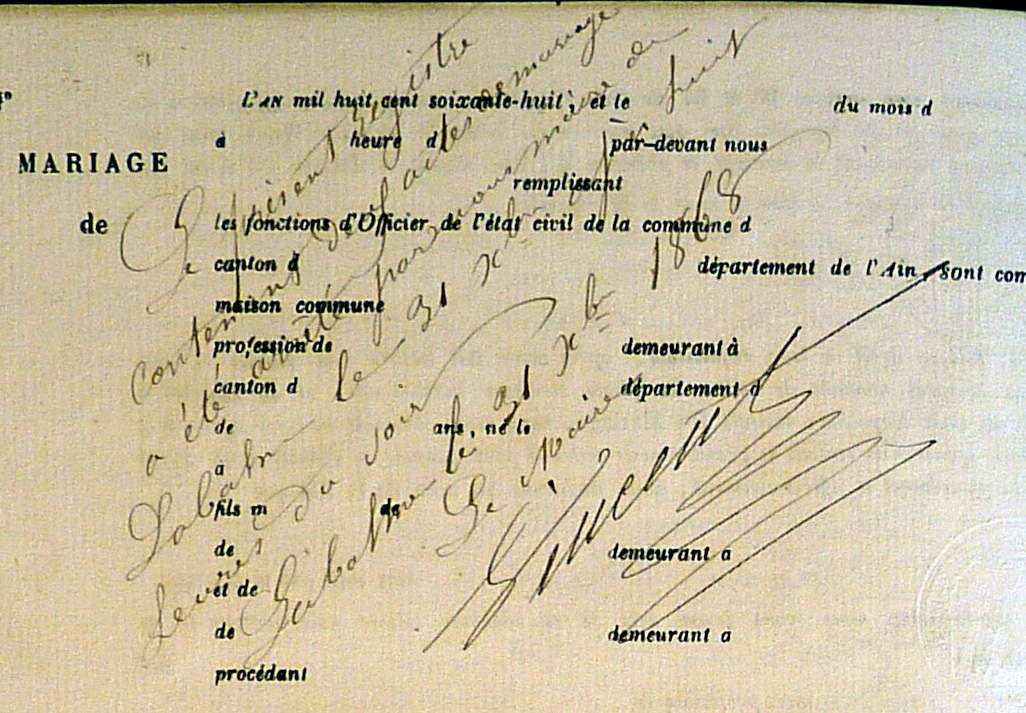 L'AN mil huit cent soixante-huit, et le du mois d
à heure d par-devant nous
MARIAGE
remplissant
de les fonctions d'Officier de l'état civil de la commune d
canton d département de l'Ain, sont com
maison commune
profession de demeurant à
canton d département d
de ans, né le
à
fils m de
de demeurant à
et de
de demeurant à
procédant
Le présent registre
contenant neuf actes de mariage
a été arrêté par nous maire de
le 31 Xbre 1868
du soir
le 31 Xbre 1868
Le Maire